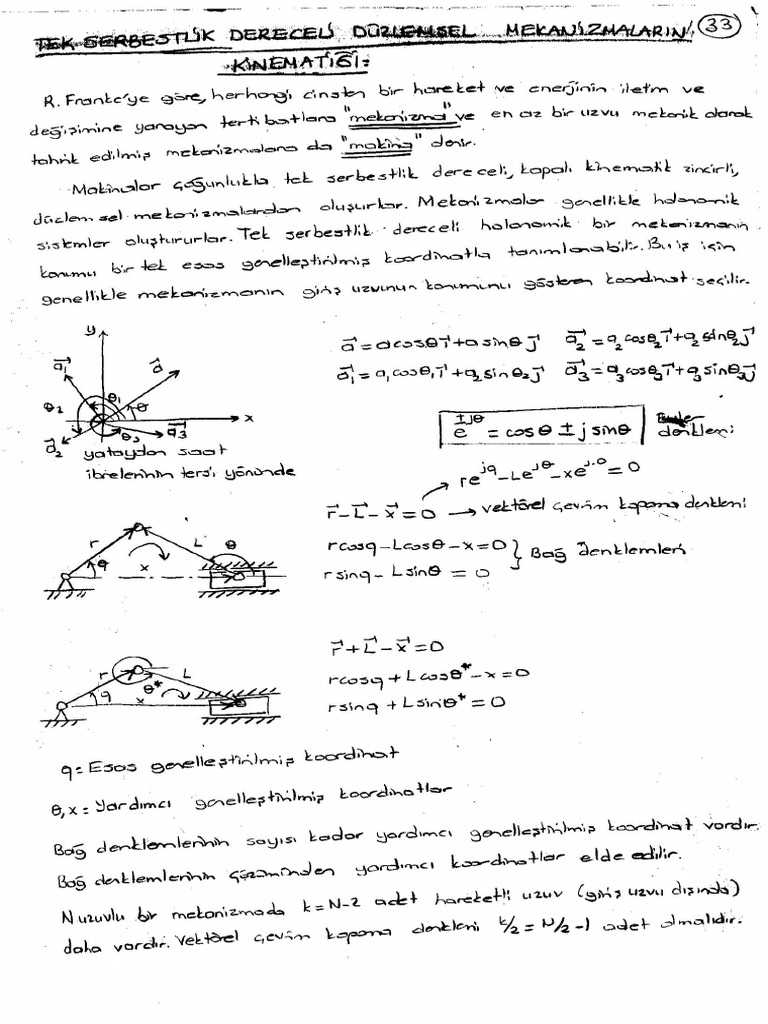 TEK SERBESTLİK DERECELİ DÜZLEMSEL MEKANİZMALARIN 33
KİNEMATİĞİ=
R. Franke'ye göre, herhangi cinsten bir hareket ve enerjinin iletim ve
değişimine yarayan tertibatlara "mekanizma" ve en az bir uzvu mekanik olarak
tahrik edilmiş mekanizmalara da "makina" denir.
Makinalar çoğunlukla tek serbestlik dereceli, kapalı kinematik zincirli,
düzlemsel mekanizmalardan oluşurlar. Mekanizmalar genellikle holonomik
sistemler oluştururlar. Tek serbestlik dereceli holonomik bir mekanizmanın
konumu bir tek esas genelleştirilmiş koordinatla tanımlanabilir. Bu iş için
genellikle mekanizmanın giriş uzvunun konumunu gösteren koordinat seçilir.
y
a⃗₁ a⃗
θ₂ θ₁ θ
x
a⃗₂ θ₃ a⃗₃
yataydan saat
ibrelerinin tersi yönünde
a⃗=acosθi⃗+asinθj⃗ a⃗₂=a₂cosθ₂i⃗+a₂sinθ₂j⃗
a⃗₁=a₁cosθ₁i⃗+a₂sinθ₂j⃗ a⃗₃=a₃cosθ₃i⃗+a₃sinθ₃j⃗
e^±jθ = cosθ ± j sinθ Euler denklemi
re^jq-Le^jθ-xe^j.0=0
r⃗-L⃗-x⃗=0 → vektörel çevrim kapama denklemi
rcosq-Lcosθ-x=0
rsinq-Lsinθ=0 } Bağ denklemleri
r L θ
q x
r⃗+L⃗-x⃗=0
rcosq+Lcosθ*-x=0
rsinq+Lsinθ*=0
r L
q θ* x
q= Esas genelleştirilmiş koordinat
θ,x= Yardımcı genelleştirilmiş koordinatlar
Bağ denklemlerinin sayısı kadar yardımcı genelleştirilmiş koordinat vardır.
Bağ denklemlerinin çözümünden yardımcı koordinatlar elde edilir.
N uzuvlu bir mekanizmada k=N-2 adet hareketli uzuv (giriş uzvu dışında)
daha vardır. Vektörel çevrim kapama denklemi k/2 = N/2 -1 adet olmalıdır.